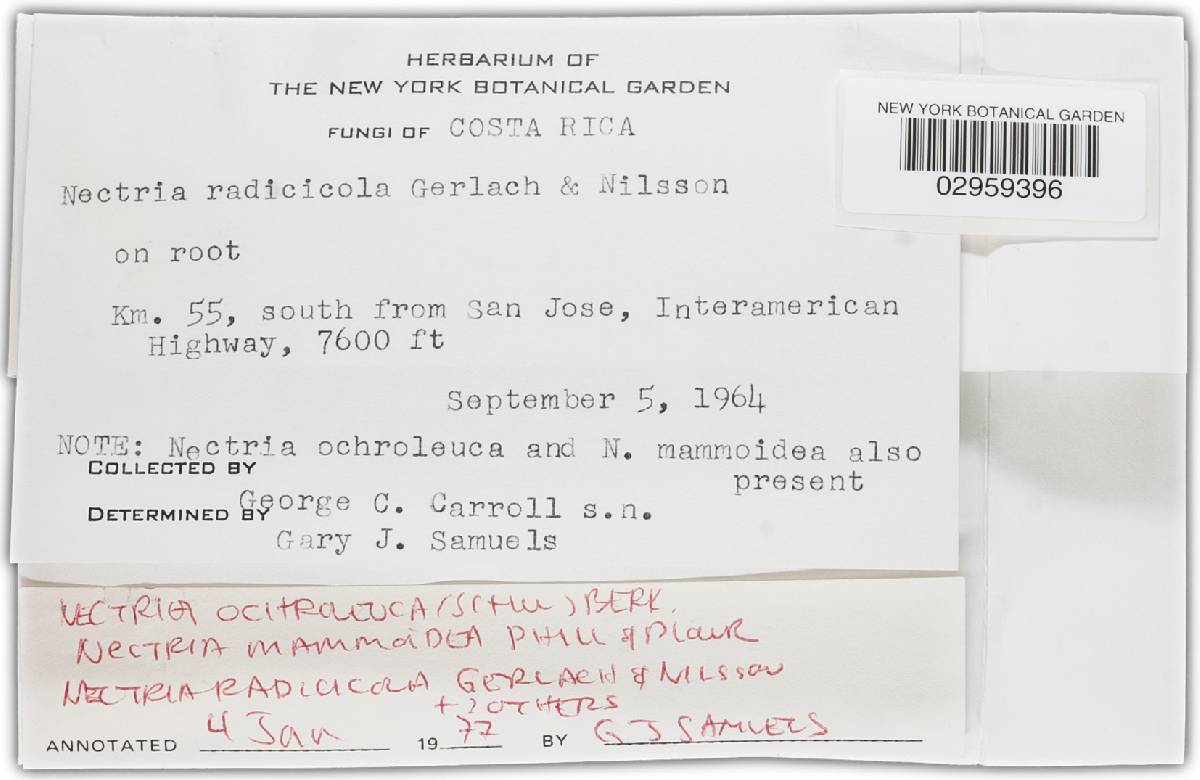 HERBARIUM OF
THE NEW YORK BOTANICAL GARDEN
FUNGI OF COSTA RICA
NEW YORK BOTANICAL GARDEN
02959396
Nectria radicicola Gerlach & Nilsson
on root
Km. 55, south from San Jose, Interamerican
Highway, 7600 ft
September 5, 1964
NOTE: Nectria ochroleuca and N. mammoidea also
present
COLLECTED BY
George C. Carroll s.n.
DETERMINED BY
Gary J. Samuels
NECTRIA OCHROLEUCA (SCHW) BERK.
NECTRIA MAMMOIDEA PHILL & PLOWR
NECTRIA RADICICOLA GERLACH & NILSSON
+ 2 OTHERS
ANNOTATED 4 Jan 1977 BY G J SAMUELS